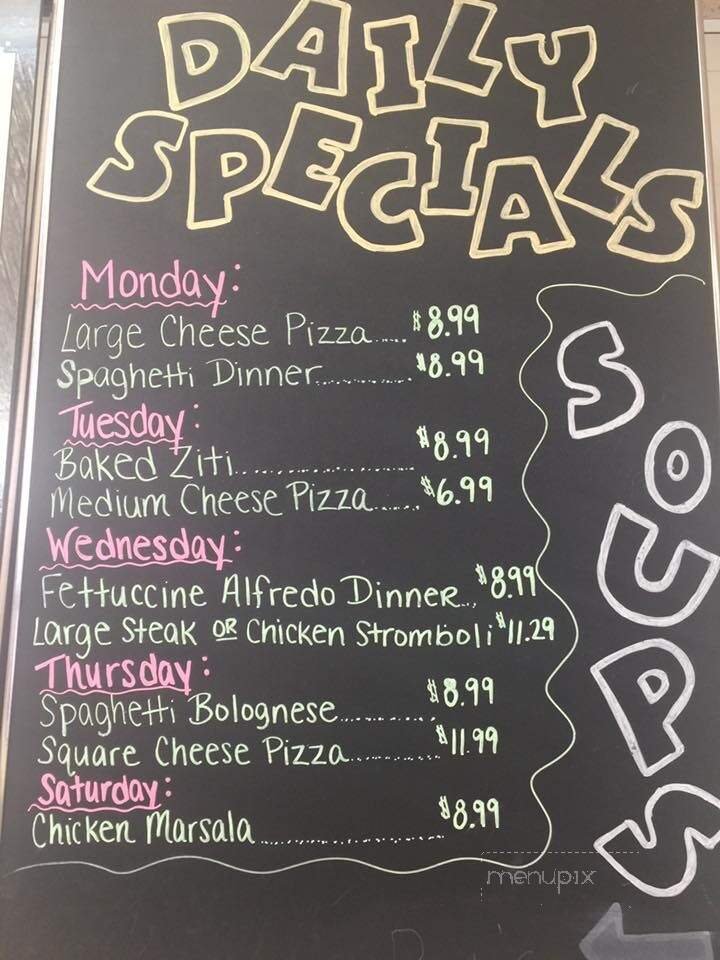 DAILY
SPECIALS
Monday:
Large Cheese Pizza..... $8.99
Spaghetti Dinner............ $8.99
Tuesday:
Baked Ziti..................... $8.99
Medium Cheese Pizza...... $6.99
Wednesday:
Fettuccine Alfredo Dinner... $8.99
Large Steak OR Chicken Stromboli $11.29
Thursday:
Spaghetti Bolognese............ $8.99
Square Cheese Pizza............ $11.99
Saturday:
Chicken Marsala...................... $8.99
SOUPS
menupix